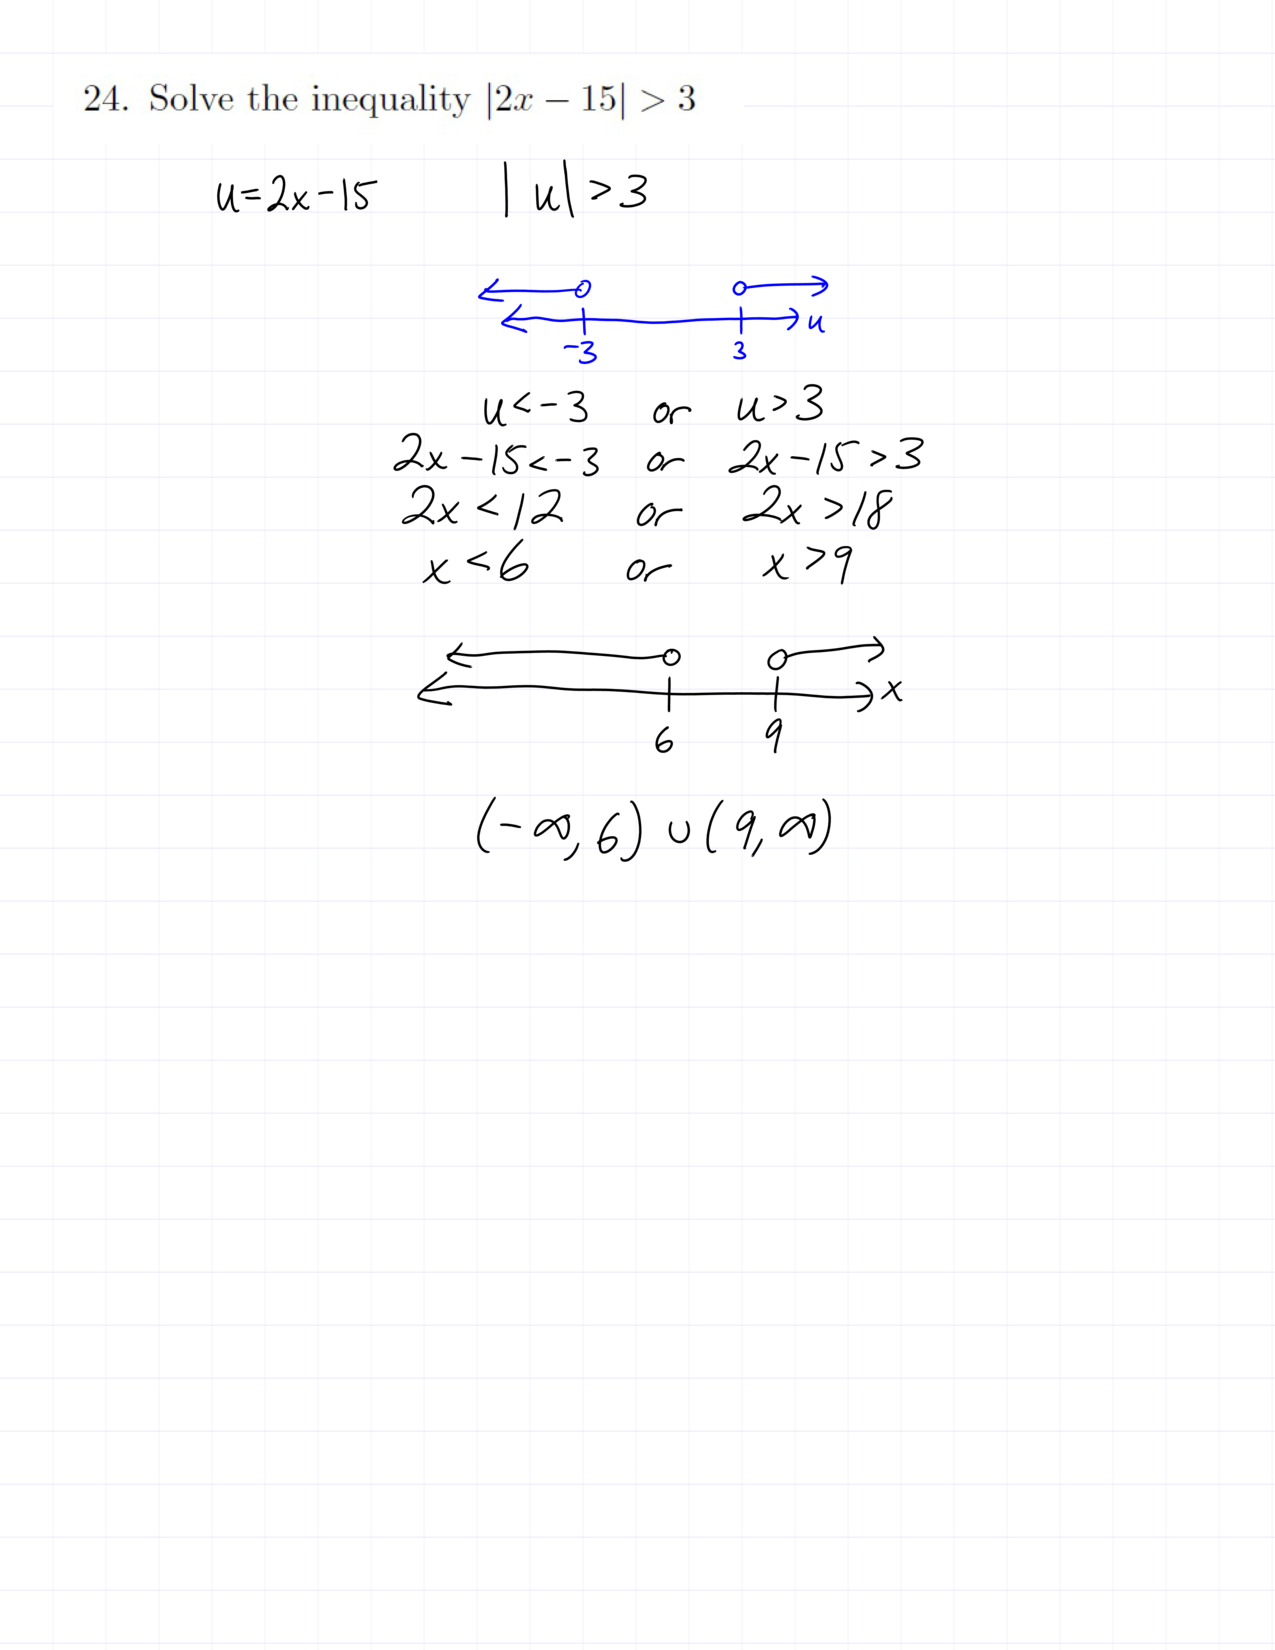 24. Solve the inequality |2x − 15| > 3
u=2x-15 |u|>3
u
-3 3
u<-3 or u>3
2x-15<-3 or 2x-15>3
2x<12 or 2x>18
x<6 or x>9
x
6 9
(-∞,6)∪(9,∞)